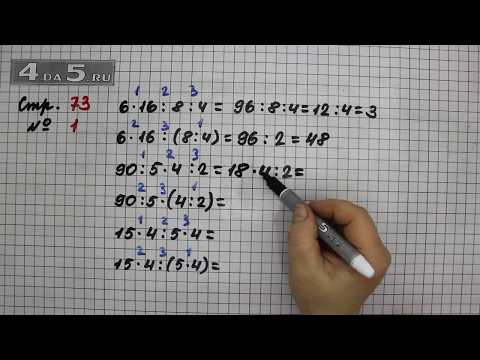 4 DA 5.RU
Стр. 73
№ 1
1 2 3
6·16:8:4= 96:8:4=12:4=3
2 3 1
6·16:(8:4)=96:2=48
1 2 3
90:5·4:2=18·4:2=
2 3 1
90:5·(4:2)=
1 2 3
15·4:5·4=
2 3 1
15·4:(5·4)=